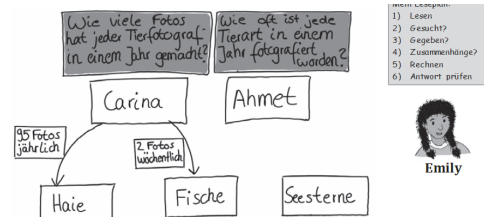 Wie viele Fotos
hat jeder Tierfotograf
in einem Jahr gemacht?
Wie oft ist jede
Tierart in einem
Jahr fotografiert
worden?
Mein Leseplan:
1) Lesen
2) Gesucht?
3) Gegeben?
4) Zusammenhänge?
5) Rechnen
6) Antwort prüfen
Carina
Ahmet
95 Fotos
jährlich
2 Fotos
wöchentlich
Emily
Haie
Fische
Seesterne